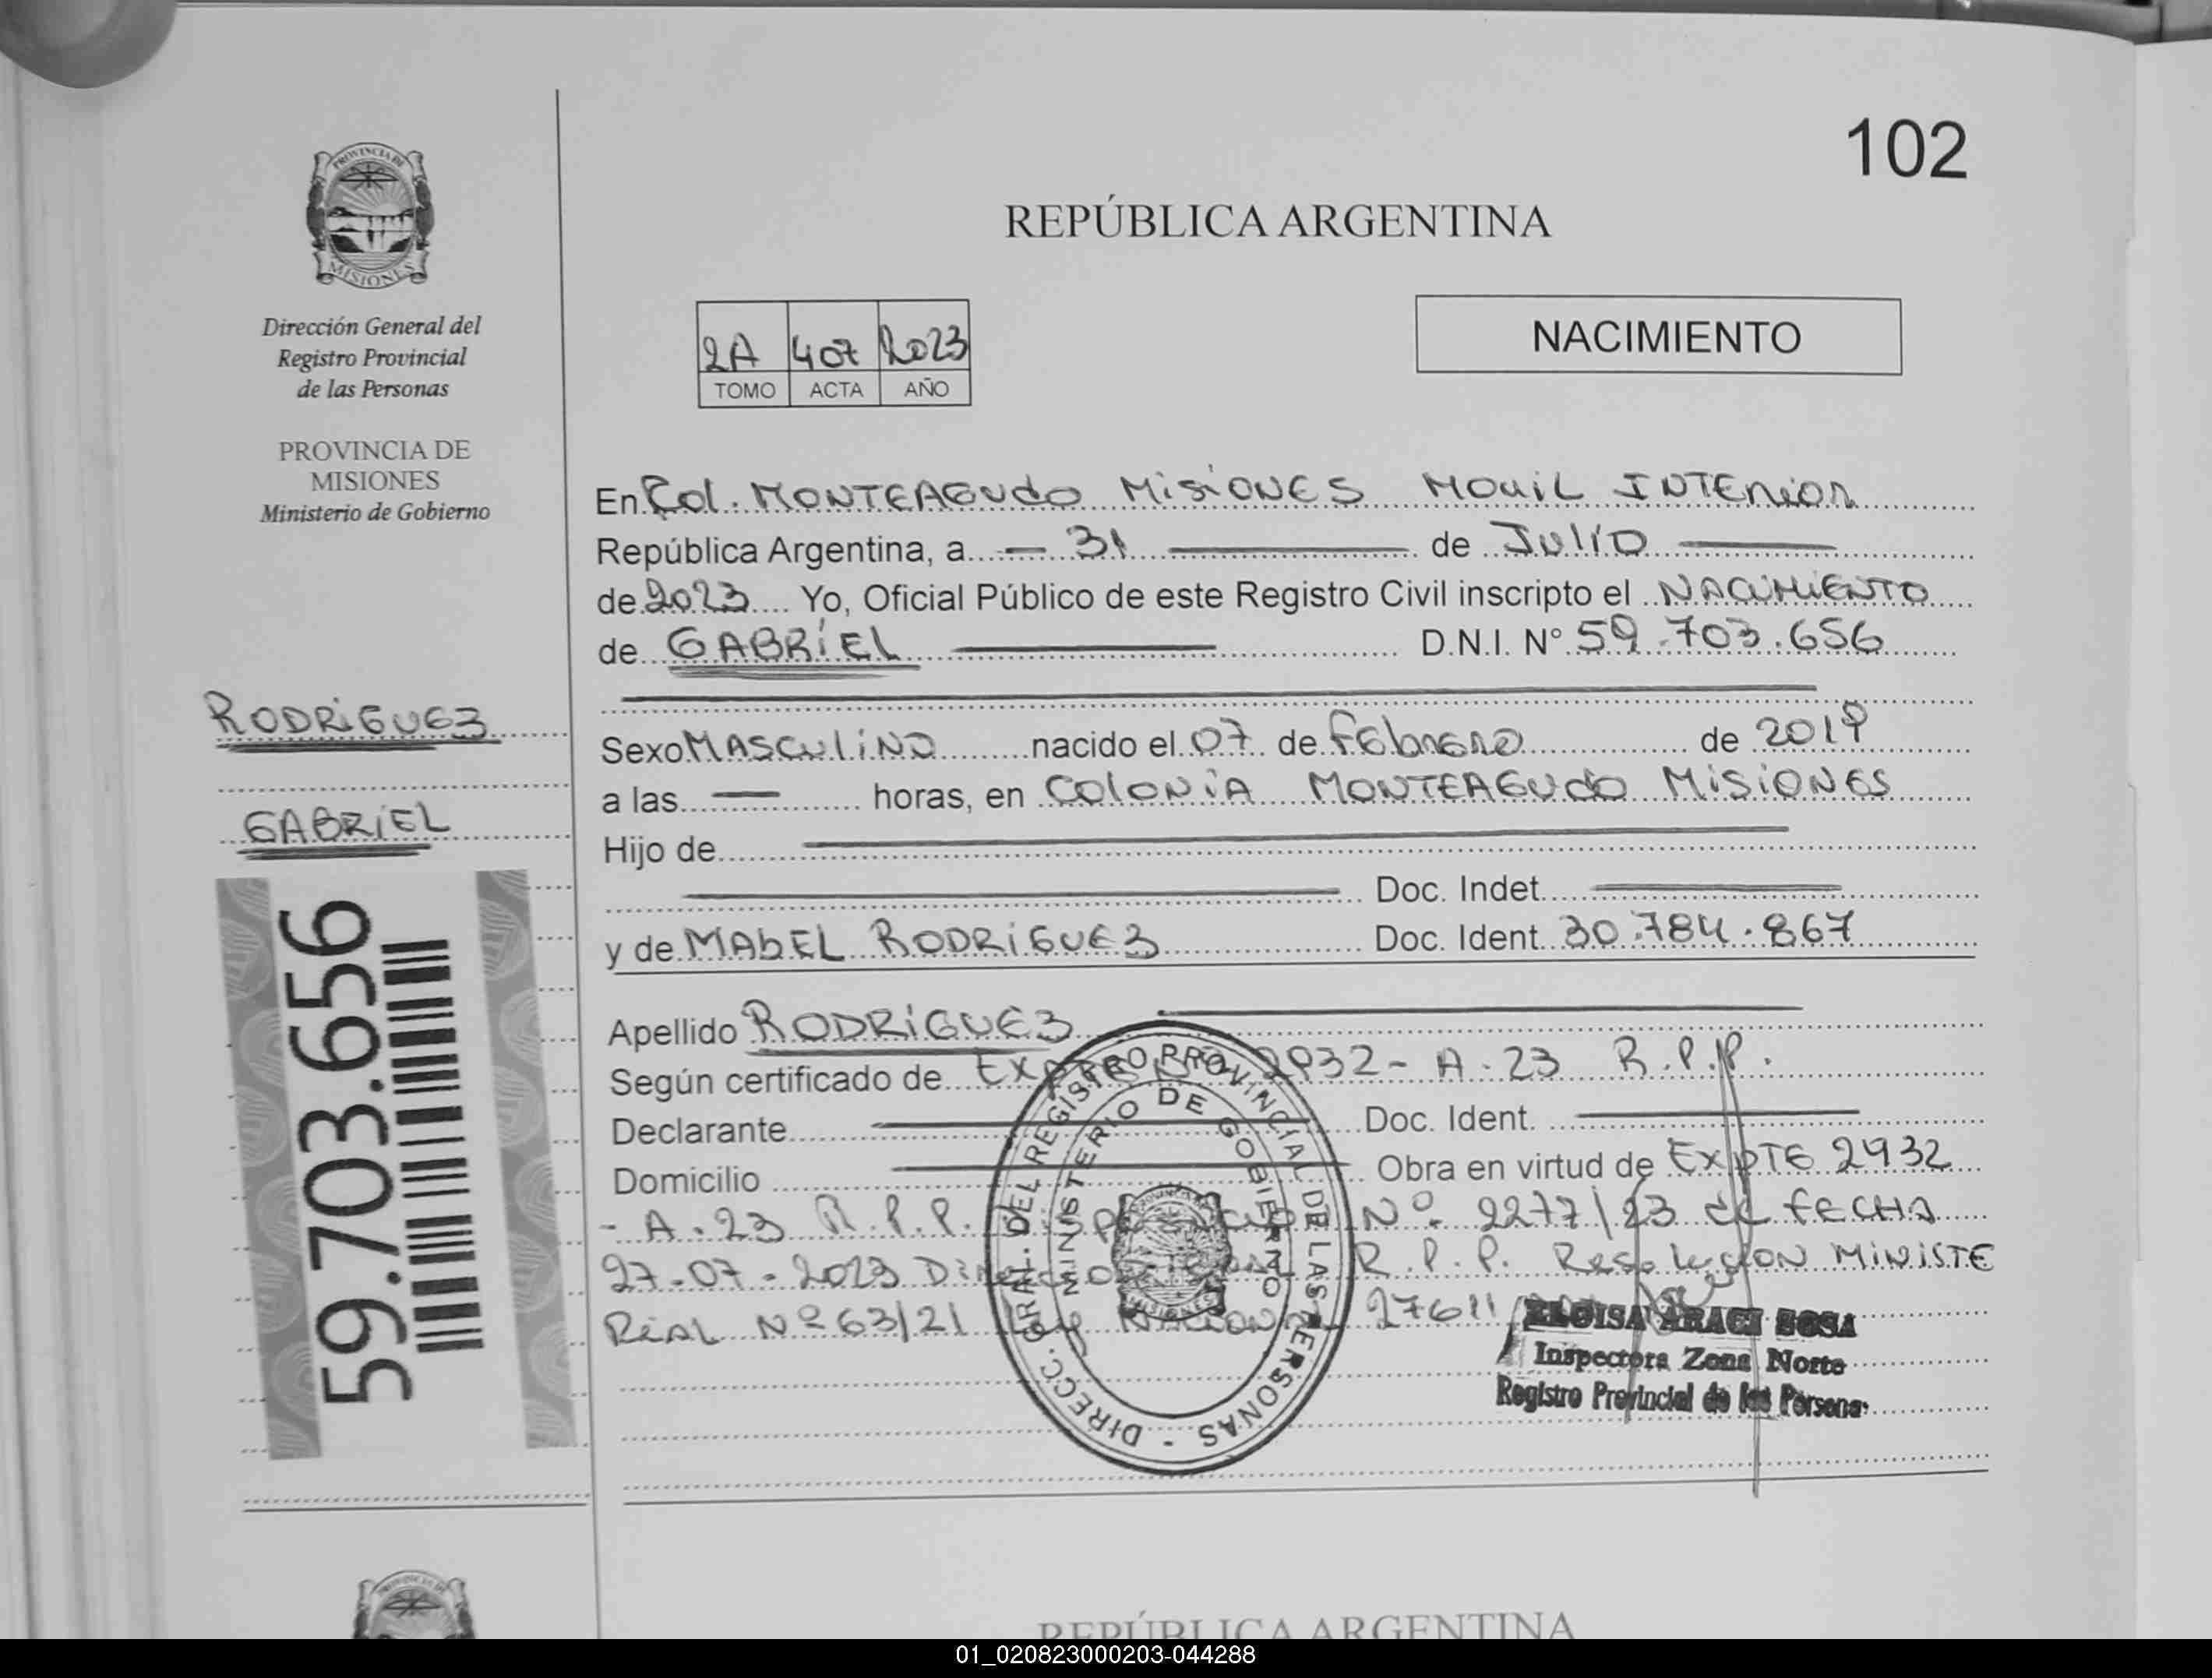 102
PROVINCIA DE
MISIONES
REPÚBLICA ARGENTINA
Dirección General del
Registro Provincial
de las Personas
PROVINCIA DE
MISIONES
Ministerio de Gobierno
2A 407 2023
TOMO ACTA AÑO
NACIMIENTO
En Col. MONTEAGUDO MISIONES MOVIL INTERIOR
República Argentina, a 31 de JULIO
de 2023 Yo, Oficial Público de este Registro Civil inscripto el NACIMIENTO
de GABRIEL D.N.I. N° 59.703.656
RODRIGUEZ
GABRIEL
59.703.656
Sexo MASCULINO nacido el 07 de Febrero de
a las horas, en COLONIA MONTEAGUDO MISIONES
Hijo de
Doc. Indet.
y de MABEL RODRIGUEZ Doc. Ident. 30.784.867
Apellido RODRIGUEZ
Según certificado de - A - 23 R.P.P.
Declarante Doc. Ident.
Domicilio Obra en virtud de EXPTE 2932
- A - 23 R.P.P. Nº 2277/23 de FECHA
27-07-2023 R.P.P. Resolucion MINISTE
RIAL Nº 63/21 Ley 27611
ELOISA ARACI SOSA
Inspectora Zona Norte
Registro Provincial de las Personas
DIRECC. GRAL. DEL REGISTRO PROVINCIAL DE LAS PERSONAS -
MINISTERIO DE GOBIERNO
REPÚBLICA ARGENTINA
01_020823000203-044288